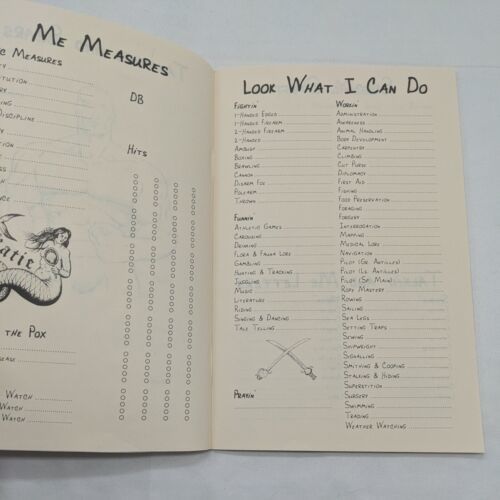 Me Measures
c Measures
tution
Discipline
DB
Hits
the Pox
ease
Watch
Watch
Watch
Look What I Can Do
Fightin'
1-Handed Edged
1-Handed Firearm
2-Handed Firearm
2-Handed
Ambush
Boxing
Brawling
Cannon
Disarm Foe
Polearm
Thrown
Funnin'
Athletic Games
Carousing
Drinking
Flora & Fauna Lore
Gambling
Hunting & Tracking
Juggling
Music
Literature
Riding
Singing & Dancing
Tale Telling
Prayin'
Workin'
Administration
Awareness
Animal Handling
Body Development
Carpentry
Climbing
Cut Purse
Diplomacy
First Aid
Fishing
Food Preservation
Foraging
Forgery
Interrogation
Mapping
Medical Lore
Navigation
Pilot (Gr. Antilles)
Pilot (Ls. Antilles)
Pilot (Sp. Main)
Rope Mastery
Rowing
Sailing
Sea Legs
Setting Traps
Sewing
Shipwright
Signalling
Smithing & Cooping
Stalking & Hiding
Superstition
Surgery
Swimming
Trading
Weather Watching